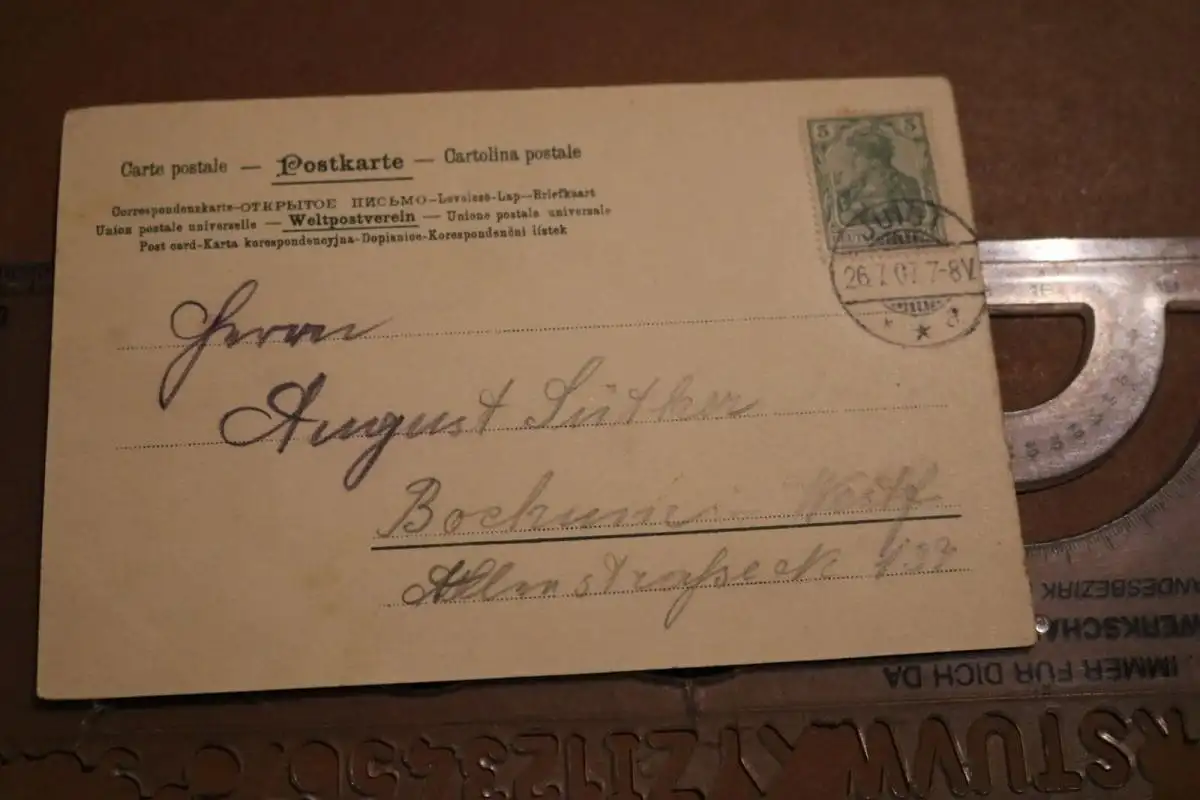 Carte postale — Postkarte — Cartolina postale
Correspondenzkarte-ОТКРЫТОЕ ПИСЬМО-Levelező-Lap-Briefkaart
Union postale universelle — Weltpostverein — Unione postale universale
Post card-Karta korespondencyjna-Dopisnice-Korespondenční lístek
5 5
26.7.07.7-8V.
* * a
Herrn
August Sütker
Bochum - Westf
IMMER FÜR DICH DA
STUVW XYZ 123456